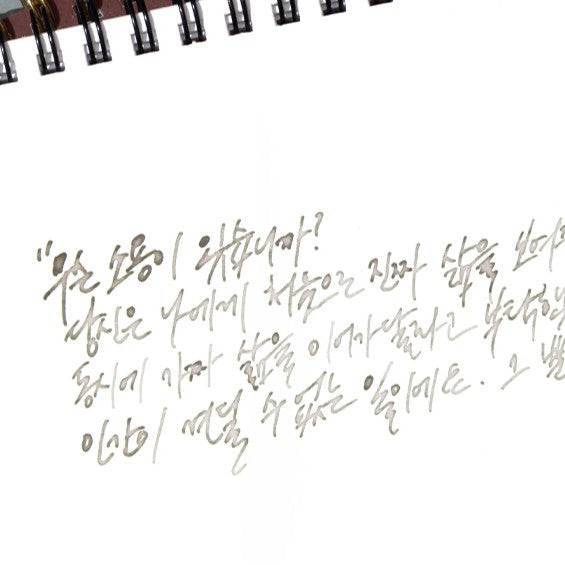 "무슨 소용이 있습니까?
당신은 나에게 처음으로 진짜 삶을 보여
동시에 가짜 삶을 이어가달라고 부탁했
인간이 견딜 수 없는 일이에요. 그 뿐